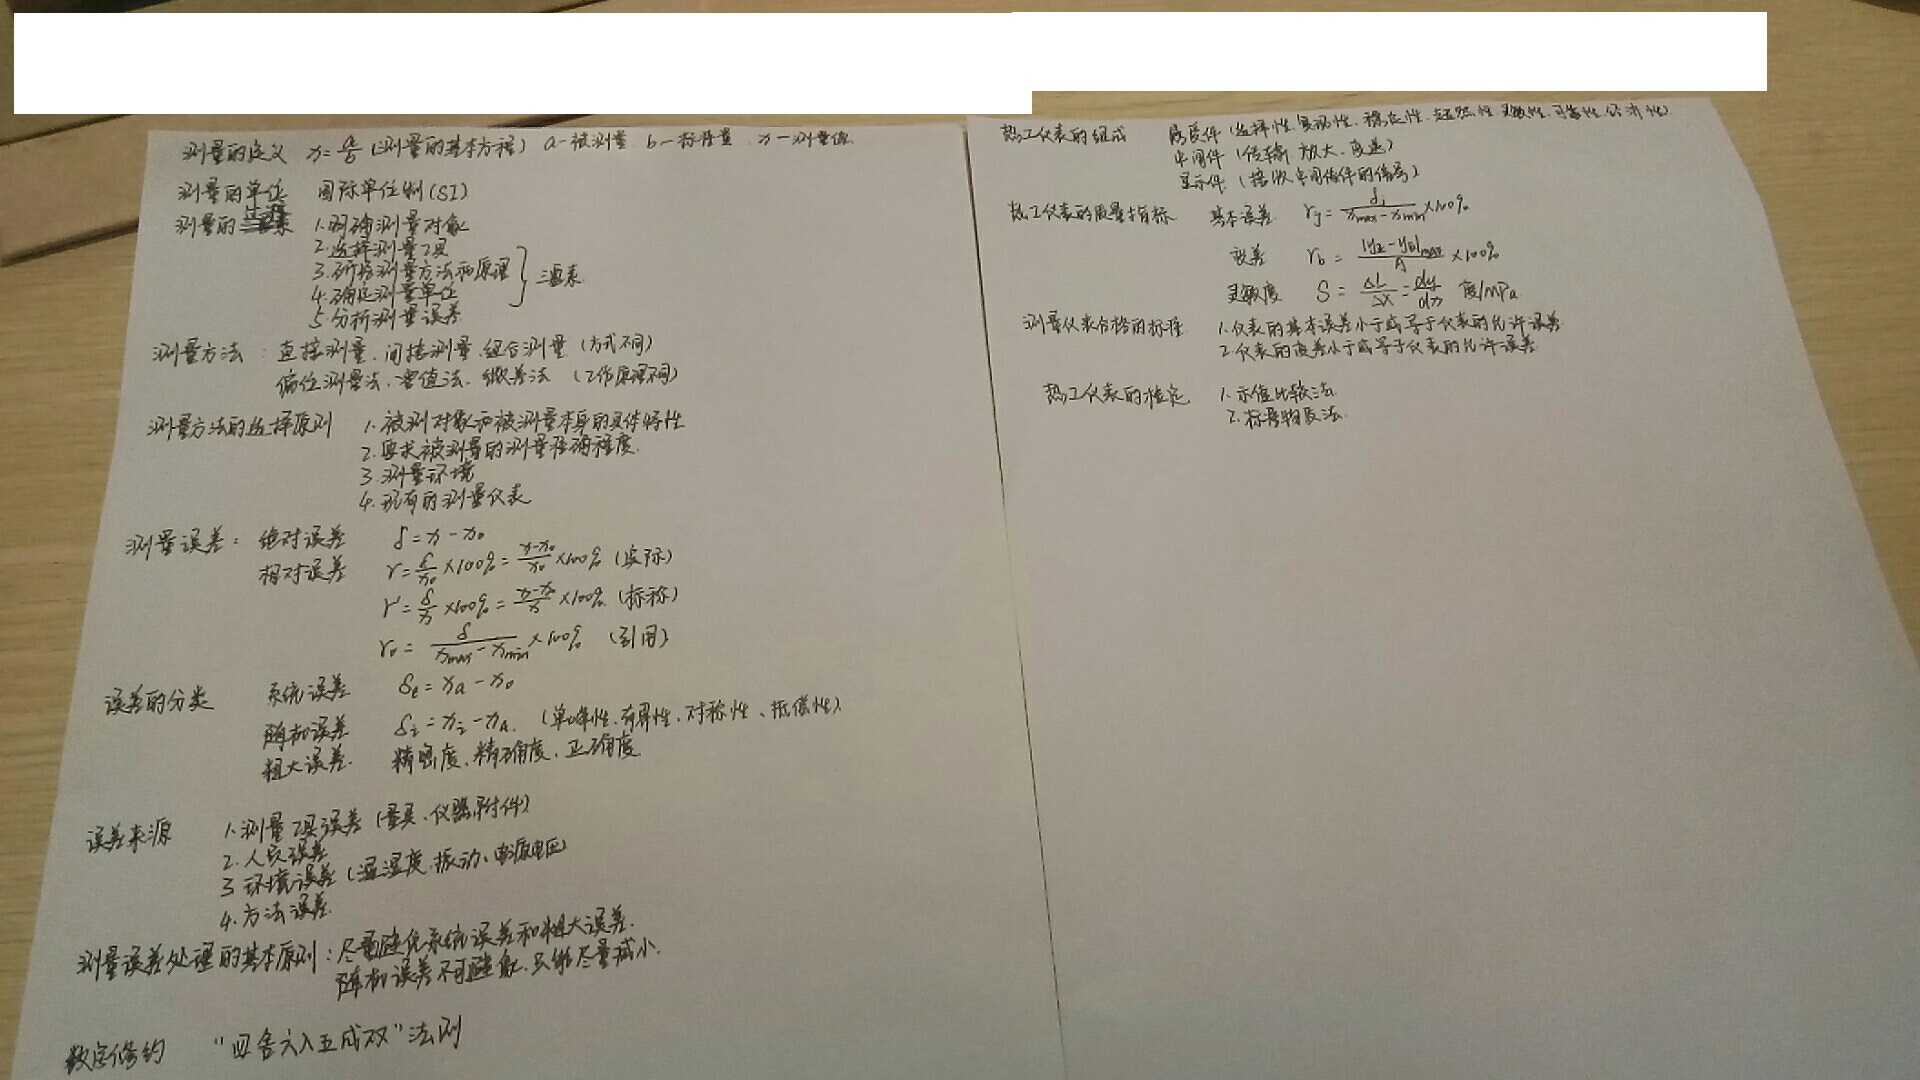 测量的定义 x=a/b (测量的基本方程) a-被测量 b-标准量 x-测量值
测量的单位 国际单位制(SI)
测量的过程 1.明确测量对象
2.选择测量工具
3.研究测量方法和原理
4.确定测量单位
5.分析测量误差
三要素
测量方法：直接测量、间接测量、组合测量 (方式不同)
偏位测量法、零值法、微差法 (工作原理不同)
测量方法的选择原则 1.被测对象和被测量本身的具体特性
2.要求被测量的测量准确程度
3.测量环境
4.现有的测量仪表
测量误差：绝对误差 δ=x-x₀
相对误差 r=δ/x₀×100%=(x-x₀)/x₀×100% (实际)
r'=δ/x×100%=(x-x₀)/x×100% (标称)
r₀=δ/(xmax-xmin)×100% (引用)
误差的分类 系统误差 δe=xa-x₀
随机误差 δi=xi-xA (单峰性、有界性、对称性、抵偿性)
粗大误差 精密度、精确度、正确度
误差来源 1.测量工具误差 (量具、仪器附件)
2.人员误差
3.环境误差 (温湿度、振动、电源电压)
4.方法误差
测量误差处理的基本原则：尽量避免系统误差和粗大误差.
随机误差不可避免,只能尽量减小.
数字修约 “四舍六入五成双”法则
热工仪表的组成 感受件 (选择性、复现性、稳定性、超然性、灵敏性、可靠性、经济性)
中间件 (传输、放大、变送)
显示件 (接收中间传件的信号)
热工仪表的质量指标 基本误差 rj=δj/(xmax-xmin)×100%
变差 rb=|yz-yF|max/A×100%
灵敏度 S=ΔL/ΔX=dy/dx 度/MPa
测量仪表合格的标准 1.仪表的基本误差小于或等于仪表的允许误差
2.仪表的变差小于或等于仪表的允许误差
热工仪表的检定 1.示值比较法.
2.标准物质法.